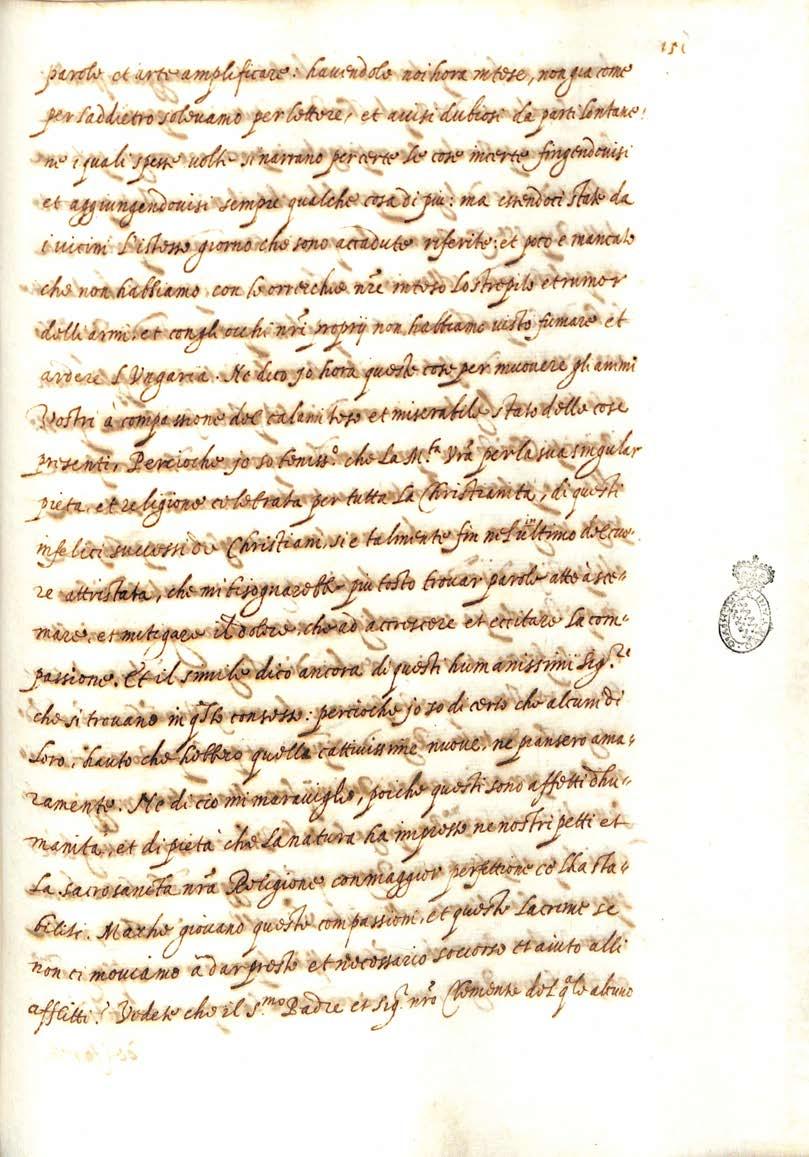 151
parole et arte amplificare: havendole noi hora intese, non gia come
per l'addietro solevamo per lettere, et avisi dubiosi da parti lontane:
ne i quali spesse volte si narrano per certe le cose incerte fingendovisi
et aggiungendovisi sempre qualche cosa di piu: ma essendoci state da
i vicini l'istesso giorno che sono accadute riferite; et poco è mancato
che non habbiamo con le orrechie nr̃e inteso lo strepito et rumor
delli armi, et con gli occhi nr̃i proprij non habbiamo visto fumare et
ardere l'Ungaria. Ne dico jo hora queste cose per muovere gli animi
Vostri à compassione del calamitoso et miserabile stato delle cose
presenti, Percioche jo so beniss.º che la M.tà Vrã per la sua singular
pieta, et religione celebrata per tutta la Christianita, di questi
infelici successi de Christiani si è talmente fin nel'ultimo del cuo-
re attristata, che mi bisognarebbe piu tosto trovar parole atte à sce=
mare, et mitigare il dolore, che ad accrescere et eccitare la com=
passione. Et il simile dico ancora di questi humanissimi Sig.ri
che si trovano in q̃sto consesso: percioche jo so di certo che alcuni di
loro, hauto che hebbero quella cattivissime nuove, ne piansero ama=
ramente. Ne di cio mi maraviglio, poiche questi sono affetti d'hu=
manità, et di pietà che la natura ha impresse ne nostri petti et
la sacrosancta nrã Religione con maggior perfettione ce l'ha sta=
bilite. Ma che giovano queste compassioni, et queste lacrime se
non ci moviamo à dar presto et necessario soccorso et aiuto alli
afflitti? Vedete che il S.mo Padre et Sig.r nrõ Clemente del q̃le alcuno